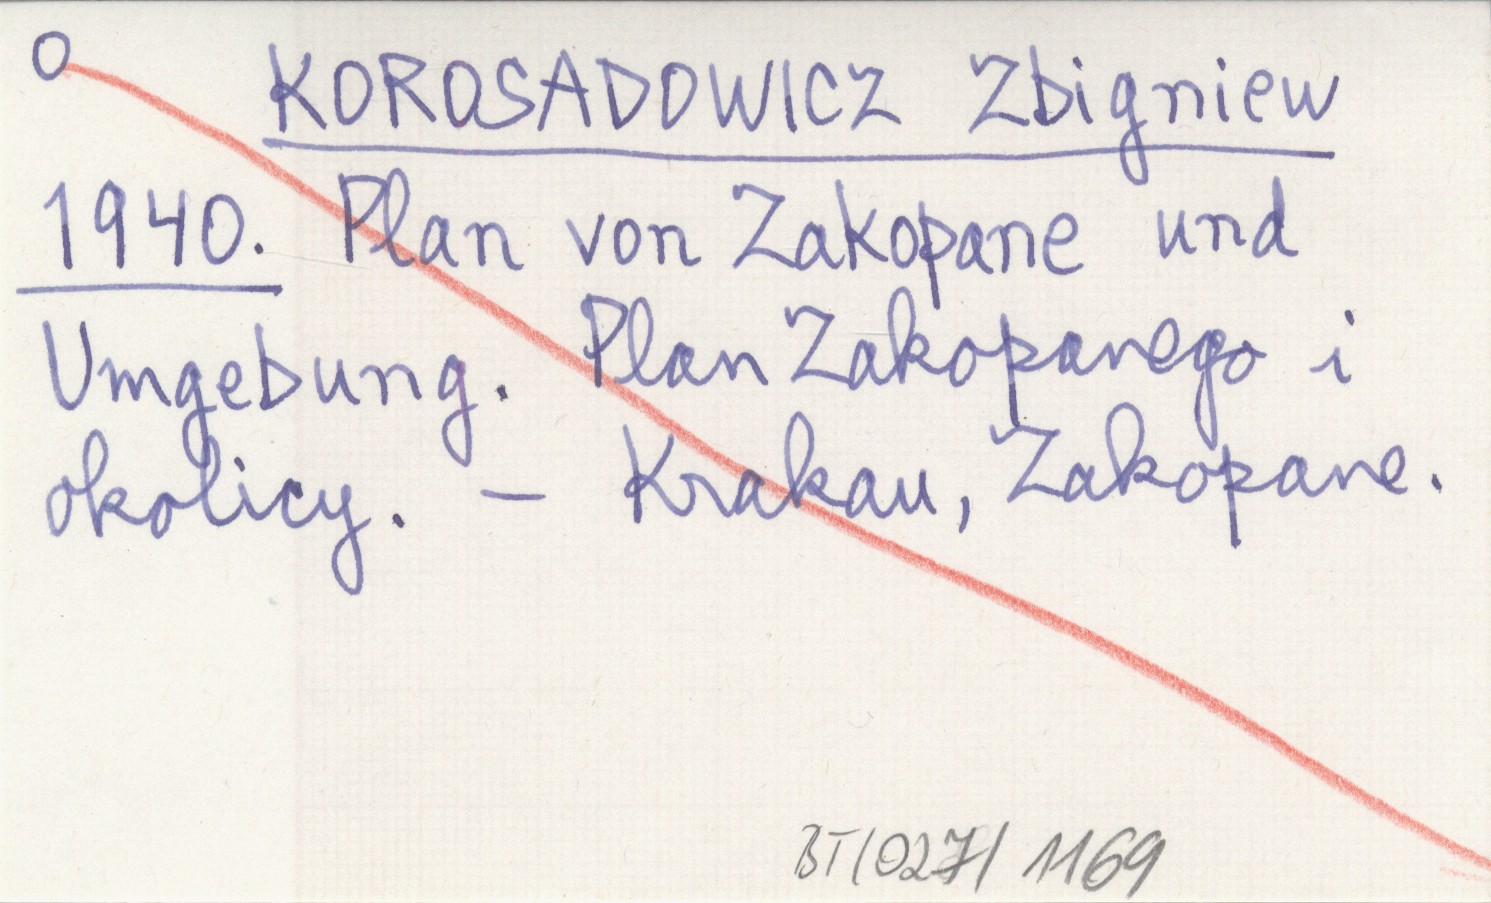 O KOROSADOWICZ Zbigniew
1940. Plan von Zakopane und
Umgebung. Plan Zakopanego i
okolicy. – Krakau, Zakopane.
BT/027/1169